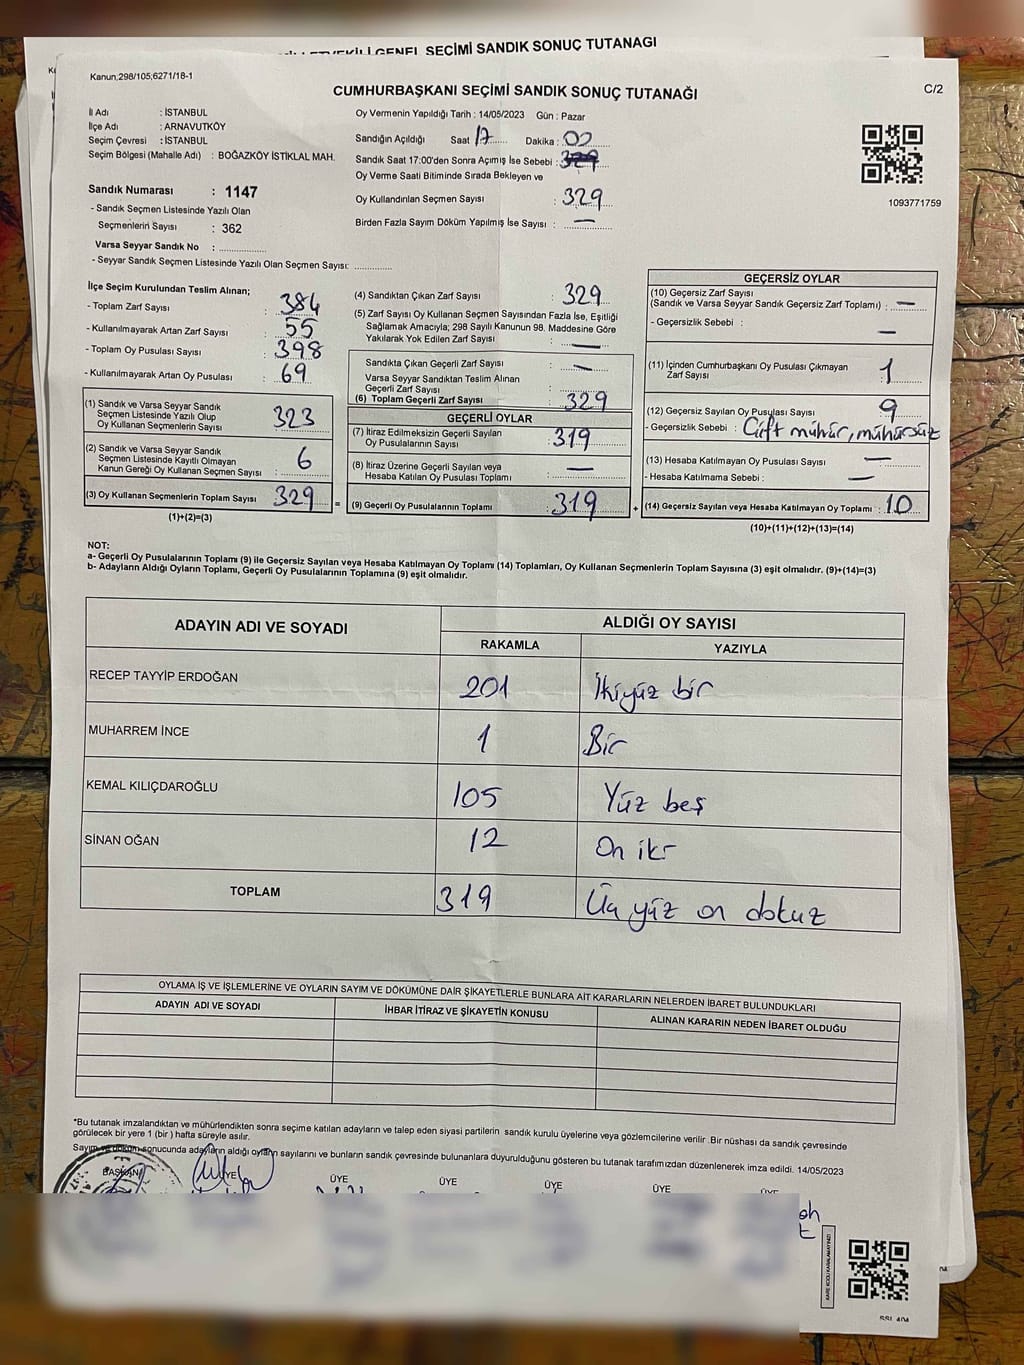 GENEL SEÇİMİ SANDIK SONUÇ TUTANAĞI
Kanun;298/105;6271/18-1
C/2
CUMHURBAŞKANI SEÇİMİ SANDIK SONUÇ TUTANAĞI
İl Adı : İSTANBUL
İlçe Adı : ARNAVUTKÖY
Seçim Çevresi : İSTANBUL
Seçim Bölgesi (Mahalle Adı) : BOĞAZKÖY İSTİKLAL MAH.
Sandık Numarası : 1147
- Sandık Seçmen Listesinde Yazılı Olan
Seçmenlerin Sayısı : 362
Varsa Seyyar Sandık No : ................
- Seyyar Sandık Seçmen Listesinde Yazılı Olan Seçmen Sayısı: .............
Oy Vermenin Yapıldığı Tarih : 14/05/2023 Gün : Pazar
Sandığın Açıldığı Saat 17 Dakika : 00
Sandık Saat 17:00'den Sonra Açımış İse Sebebi : 329
Oy Verme Saati Bitiminde Sırada Bekleyen ve
Oy Kullandırılan Seçmen Sayısı : 329
Birden Fazla Sayım Döküm Yapılmış İse Sayısı : —
1093771759
İlçe Seçim Kurulundan Teslim Alınan;
- Toplam Zarf Sayısı : 384
- Kullanılmayarak Artan Zarf Sayısı : 55
- Toplam Oy Pusulası Sayısı : 398
- Kullanılmayarak Artan Oy Pusulası : 69
(1) Sandık ve Varsa Seyyar Sandık
Seçmen Listesinde Yazılı Olup
Oy Kullanan Seçmenlerin Sayısı : 323
(2) Sandık ve Varsa Seyyar Sandık
Seçmen Listesinde Kayıtlı Olmayan
Kanun Gereği Oy Kullanan Seçmen Sayısı : 6
(3) Oy Kullanan Seçmenlerin Toplam Sayısı : 329
(1)+(2)=(3)
(4) Sandıktan Çıkan Zarf Sayısı : 329
(5) Zarf Sayısı Oy Kullanan Seçmen Sayısından Fazla İse, Eşitliği
Sağlamak Amacıyla; 298 Sayılı Kanunun 98. Maddesine Göre
Yakılarak Yok Edilen Zarf Sayısı : —
Sandıkta Çıkan Geçerli Zarf Sayısı : —
Varsa Seyyar Sandıktan Teslim Alınan
Geçerli Zarf Sayısı :
(6) Toplam Geçerli Zarf Sayısı : 329
GEÇERLİ OYLAR
(7) İtiraz Edilmeksizin Geçerli Sayılan
Oy Pusulalarının Sayısı : 319
(8) İtiraz Üzerine Geçerli Sayılan veya
Hesaba Katılan Oy Pusulası Toplamı : —
= (9) Geçerli Oy Pusulalarının Toplamı : 319
GEÇERSİZ OYLAR
(10) Geçersiz Zarf Sayısı
(Sandık ve Varsa Seyyar Sandık Geçersiz Zarf Toplamı) : —
- Geçersizlik Sebebi : —
(11) İçinden Cumhurbaşkanı Oy Pusulası Çıkmayan
Zarf Sayısı : 1
(12) Geçersiz Sayılan Oy Pusulası Sayısı : 9
- Geçersizlik Sebebi : Çift mühür, mühürsüz
(13) Hesaba Katılmayan Oy Pusulası Sayısı : —
- Hesaba Katılmama Sebebi : —
+ (14) Geçersiz Sayılan veya Hesaba Katılmayan Oy Toplamı : 10
(10)+(11)+(12)+(13)=(14)
NOT:
a- Geçerli Oy Pusulalarının Toplamı (9) ile Geçersiz Sayılan veya Hesaba Katılmayan Oy Toplamı (14) Toplamları, Oy Kullanan Seçmenlerin Toplam Sayısına (3) eşit olmalıdır. (9)+(14)=(3)
b- Adayların Aldığı Oyların Toplamı, Geçerli Oy Pusulalarının Toplamına (9) eşit olmalıdır.
ADAYIN ADI VE SOYADI
ALDIĞI OY SAYISI
RAKAMLA YAZIYLA
RECEP TAYYİP ERDOĞAN 201 İkiyüz bir
MUHARREM İNCE 1 Bir
KEMAL KILIÇDAROĞLU 105 Yüz beş
SİNAN OĞAN 12 On iki
TOPLAM 319 Üç yüz on dokuz
OYLAMA İŞ VE İŞLEMLERİNE VE OYLARIN SAYIM VE DÖKÜMÜNE DAİR ŞİKAYETLERLE BUNLARA AİT KARARLARIN NELERDEN İBARET BULUNDUKLARI
ADAYIN ADI VE SOYADI İHBAR İTİRAZ VE ŞİKAYETİN KONUSU ALINAN KARARIN NEDEN İBARET OLDUĞU
*Bu tutanak imzalandıktan ve mühürlendikten sonra seçime katılan adayların ve talep eden siyasi partilerin sandık kurulu üyelerine veya gözlemcilerine verilir .Bir nüshası da sandık çevresinde
görülecek bir yere 1 (bir ) hafta süreyle asılır.
Sayım ve döküm sonucunda adayların aldığı oyların sayılarını ve bunların sandık çevresinde bulunanlara duyurulduğunu gösteren bu tutanak tarafımızdan düzenlenerek imza edildi. 14/05/2023
BAŞKAN ÜYE ÜYE ÜYE ÜYE ÜYE ÜYE